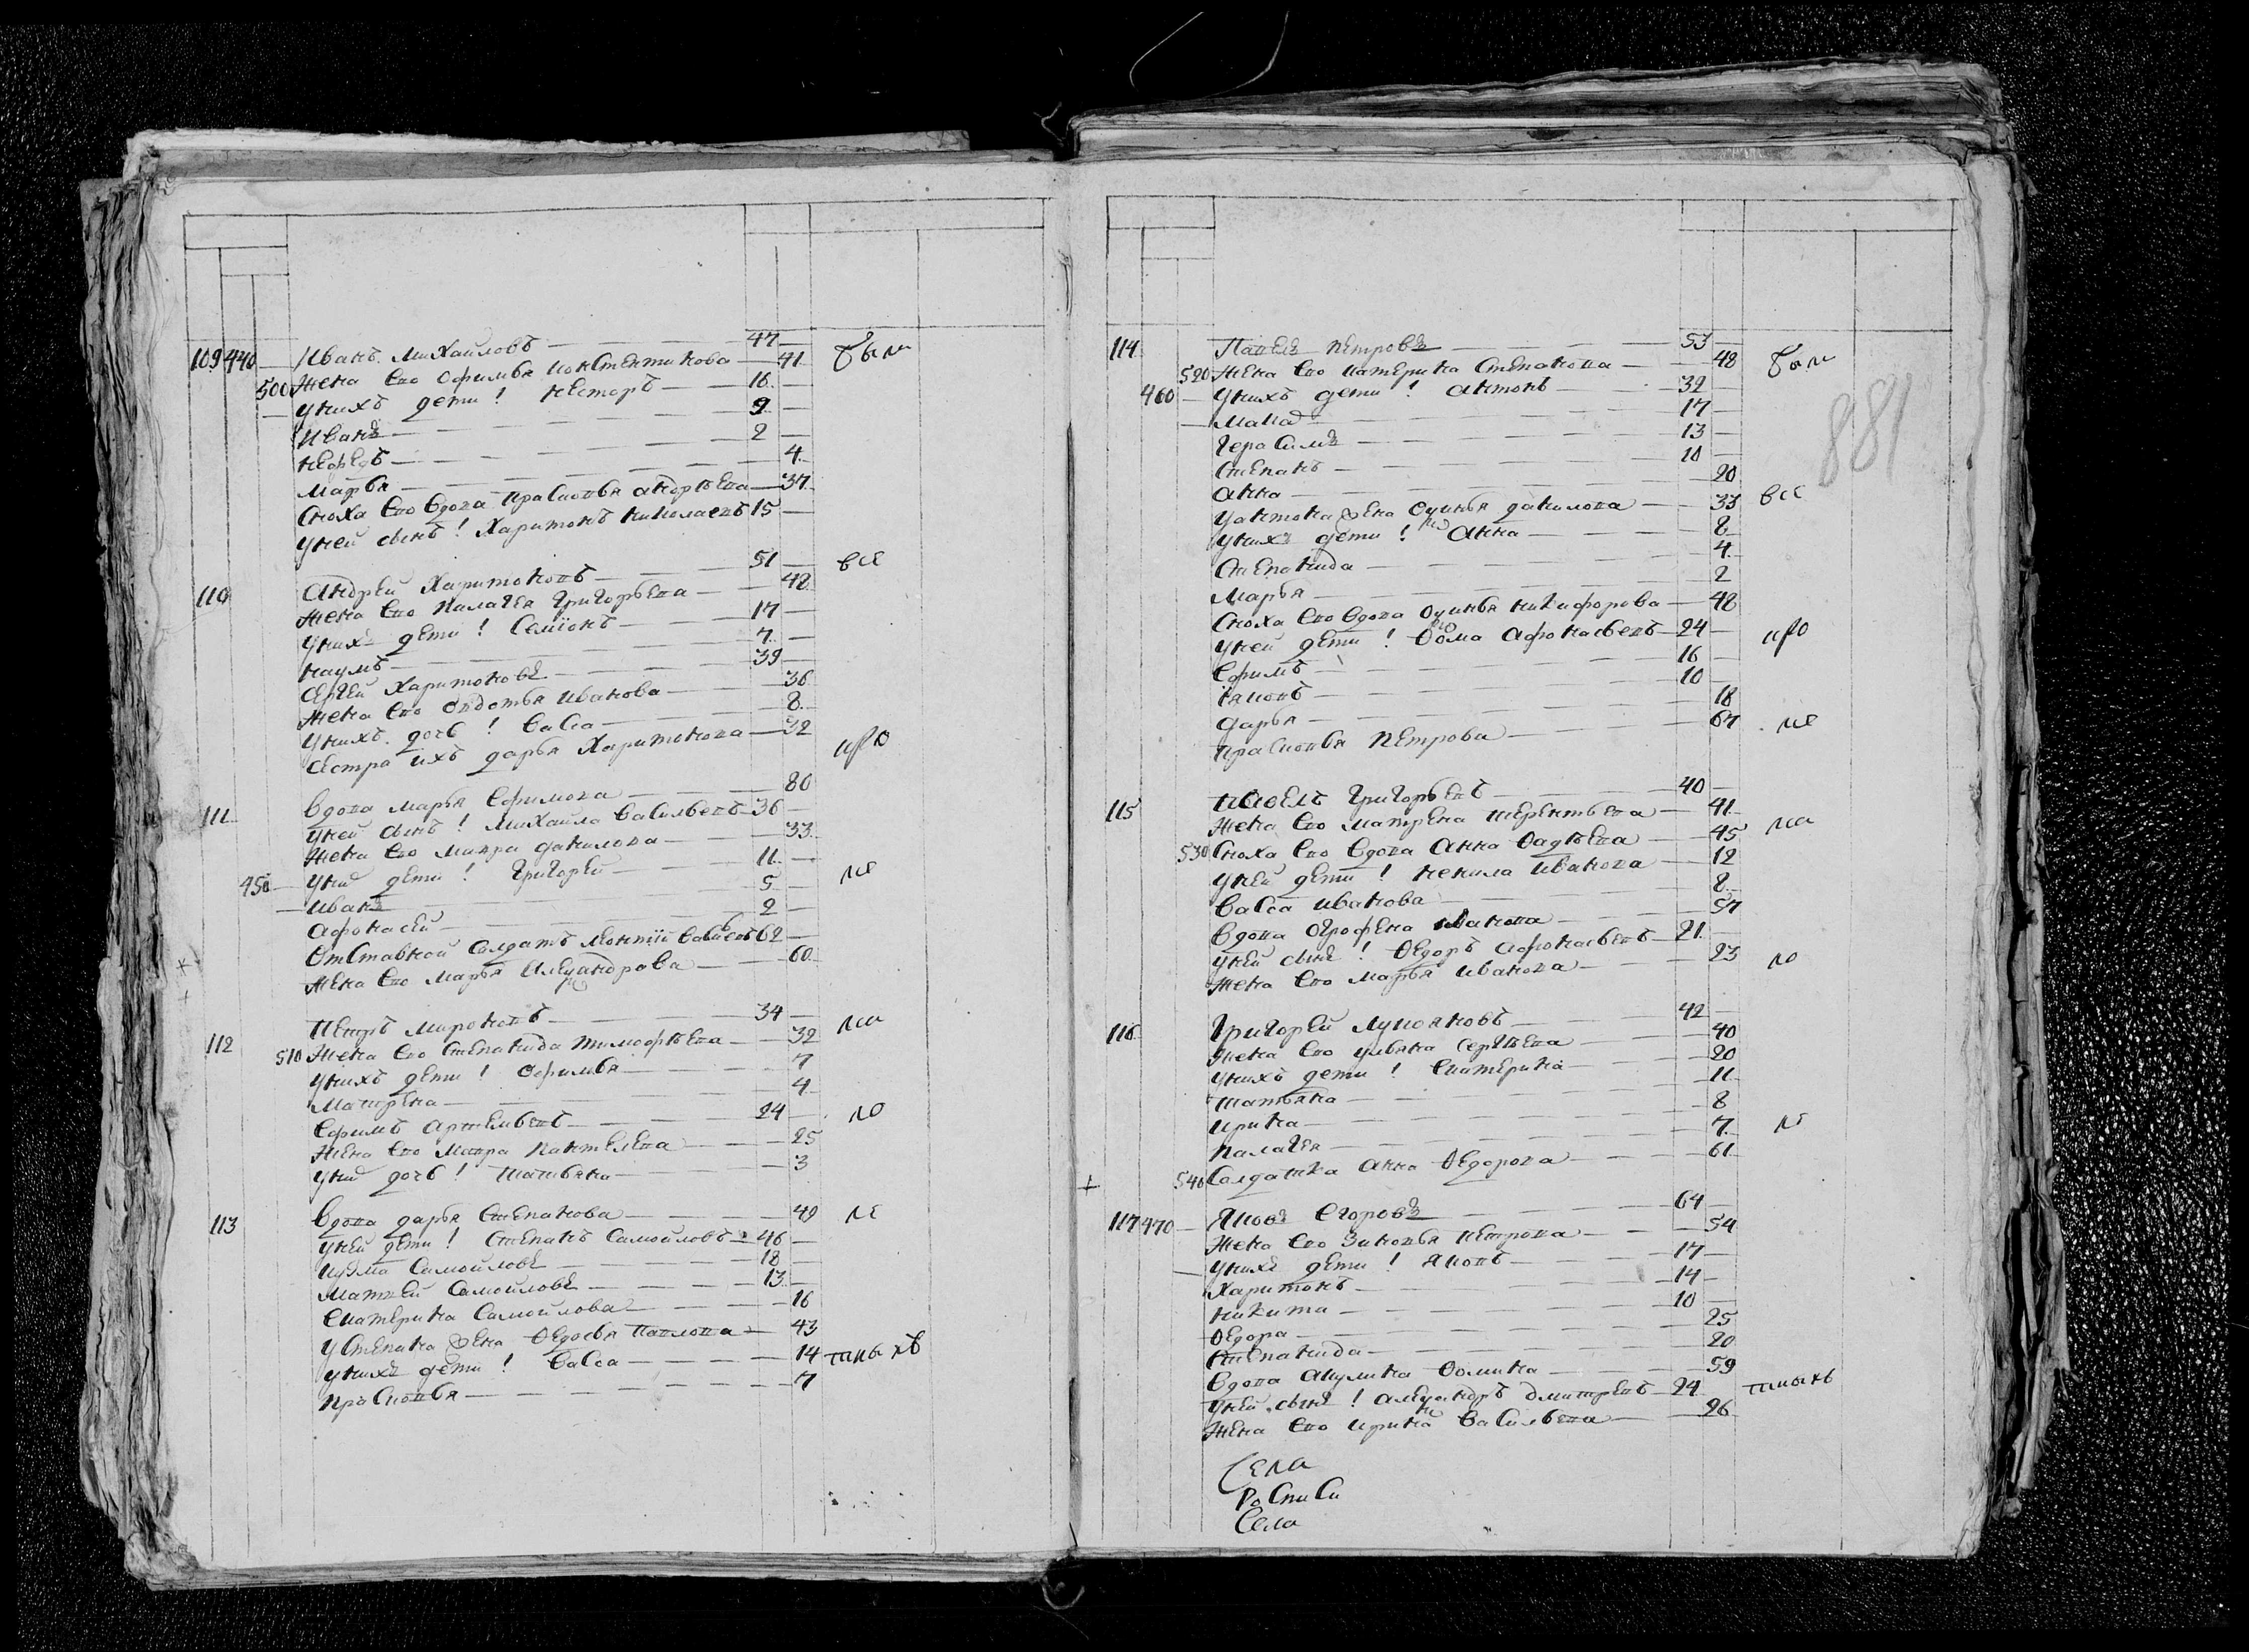 109 440 Иванъ Михайловъ 47 были
Жена Ево Офимья Константинова 41
500 Унихъ дети! Несторъ 16
Иванъ 9
Нефедъ 2
Марья 4
Сноха Ево Вдова Прасковья Андрѣева 37
Уней сынъ! Харитонъ Николаевъ 15
110 Андрей Харитоновъ 51 все
Жена Ево Палагея Григорьева 48
Унихъ дети! Семіонъ 17
Наумъ 7
Сергей Харитоновъ 39
Жена Ево Овдотья Иванова 36
Унихъ дочь! Васса 8
Сестра ихъ Дарья Харитонова 32 кро
111 Вдова Марья Ефимова 80
Уней сынъ! Михайла Васильевъ 36
Жена Ево Мавра Данилова 33
450 Унихъ дети! Григорей 11 ме
Иванъ 5
Афонасей 2
Отставной Солдатъ Леонтій 62
Жена Ево Марья Александрова 60
112 Петръ Мироновъ 34 ли
510 Жена Ево Степанида Тимофѣева 32
Унихъ дети! Офимья 7
Матрена 4
Ефимъ Артемьевъ 24 ло
Жена Ево Мавра Пантелева 25
Унихъ дочь! Татьяна 3
113 Вдова Дарья Степанова 49 ле
Уней дети! Степанъ Самойловъ 46
Кузма Самойловъ 18
Матвей Самойловъ 13
Екатерина Самойлова 16
УСтепана Жена Ѳедосья Павлова 43
Унихъ дети! Васса 14 тныхъ
Прасковья 7
114 Павелъ Петровъ 53 были
520 Жена Ево Катерина Степанова 48
460 Унихъ дети! Антонъ 32
881
Макаръ 17
Герасимъ 13
Степанъ 10
Анна 20
УАнтона Жена Данилова 33 все
Унихъ дети! Анна 8
Степанида 4
Марья 2
Сноха Ево Вдова Никифорова 48
Уней дети! Ѳома Афонасьевъ 24 кро
Ефимъ 16
Яковъ 10
Дарья 18
Прасковья Петрова 67 ме
115 Павелъ Григорьевъ 40
Жена Ево Матрена Терентьева 41
530 Сноха Ево Вдова Анна Ѳадѣева 45 ли
Уней дети! Ненила Иванова 12
Васса Иванова 8
Вдова Огрофена Иванова 57
Уней сынъ! Ѳедоръ Афонасьевъ 21
Жена Ево Марья Иванова 23 ло
116 Григорей Лукояновъ 42
Жена Ево Ульяна Сергѣева 40
Унихъ дети! Екатерина 20
Татьяна 11
Ирина 8
Палагея 7 ле
540 Солдатка Анна Ѳедорова 61
117 470 Яковъ Егоровъ 64
Жена Ево Зиновья Петрова 54
Унихъ дети! Яковъ 17
Харитонъ 14
Никита 10
Ѳедора 25
Степанида 20
Вдова Акулина Ѳомина 59
Уней сынъ! Александръ Дмитревъ 24 тныхъ
Жена Ево Ирина Васильева 26
Села
РоСпиСи
Села